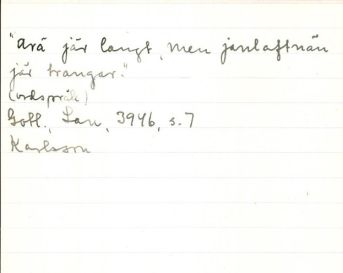 "Arä jär langt, men janlaftnän
jär trangar."
(ordspråk)
Gotl., Lau, 3946, s. 7
Karlsson